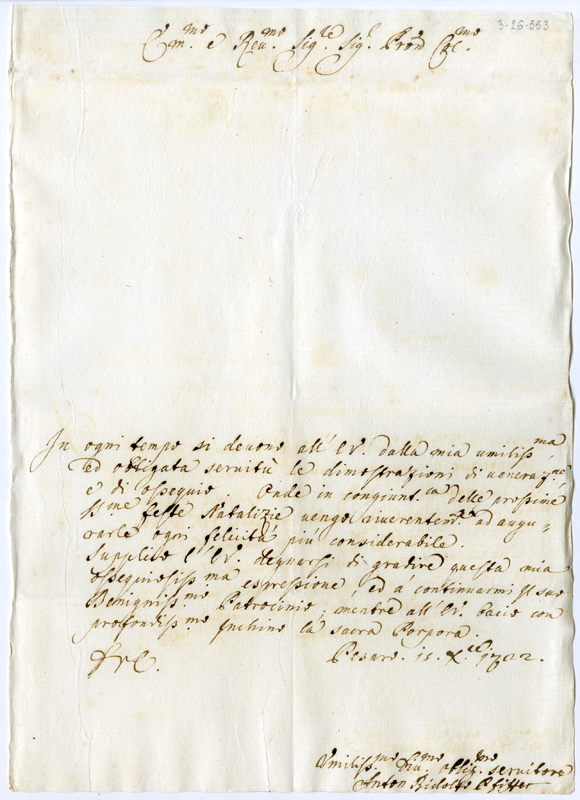 3-26-553
Em.mo e Reu.mo Sig.re Sig.r Pron Col.mo
In ogni tempo si deuono all' E.V. dalla mia umiliss.ma
ed obligata seruitù le dimostrazioni di ueneraz.ne
e di ossequio. Onde in congiunt.ra delle prossime
SS.me feste Natalizie uengo riuerentem.te ad augu-
rarle ogni felicità più considerabile.
Supplico l'E.V. degnarsi di gradire questa mia
ossequiosiss.ma espressione, ed à continuarmi il suo
Benigniss.mo Patrocinio; mentre all' E.V. bacio con
profondiss.mo Inchino la sacra Porpora.
Pesaro. 15. X.bre 1722.
Umiliss.mo Diu.mo oblig.mo seruitore
Anton Ridolfo Pfiffer